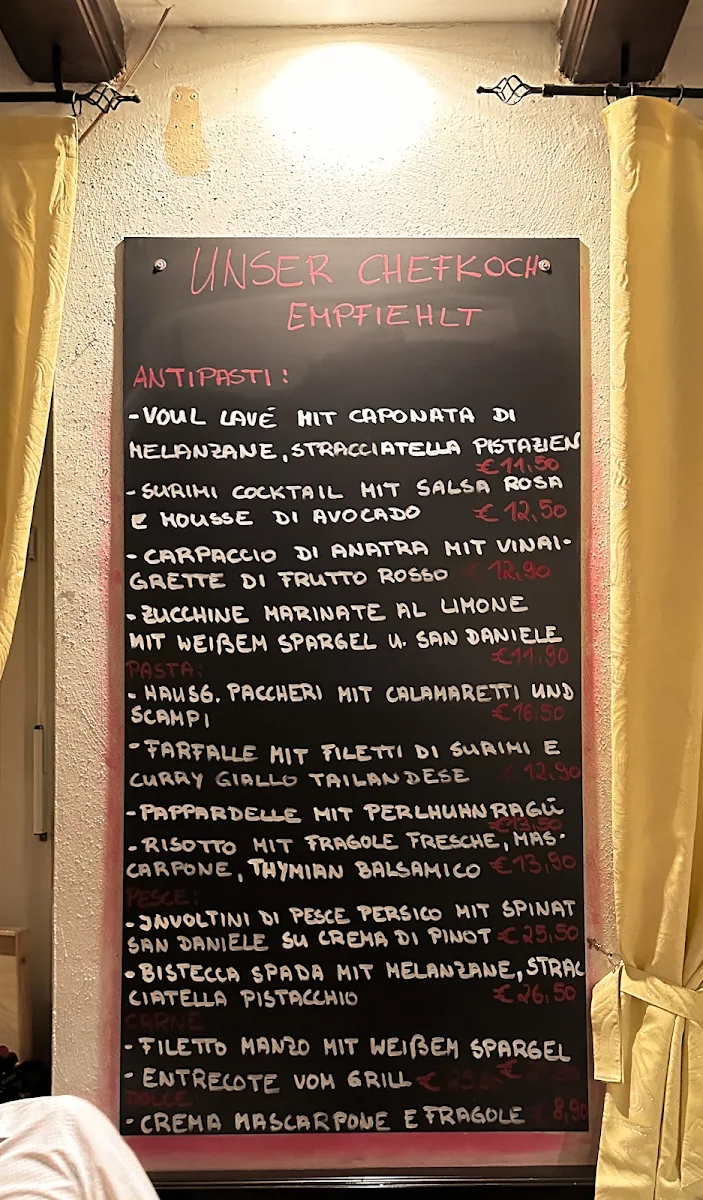 UNSER CHEFKOCH
EMPFIEHLT
ANTIPASTI:
-VOUL LAVÉ MIT CAPONATA DI
MELANZANE, STRACCIATELLA PISTAZIEN
€ 11,50
-SURIMI COCKTAIL MIT SALSA ROSA
E MOUSSE DI AVOCADO € 12,50
-CARPACCIO DI ANATRA MIT VINAI-
GRETTE DI FRUTTO ROSSO € 12,90
-ZUCCHINE MARINATE AL LIMONE
MIT WEIßEM SPARGEL U. SAN DANIELE
€ 11,90
PASTA:
-HAUSG. PACCHERI MIT CALAMARETTI UND
SCAMPI € 16,50
-FARFALLE MIT FILETTI DI SURIMI E
CURRY GIALLO TAILANDESE € 12,90
-PAPPARDELLE MIT PERLHUHNRAGÙ
€ 13,50
-RISOTTO MIT FRAGOLE FRESCHE, MAS-
CARPONE, THYMIAN BALSAMICO € 13,90
PESCE:
-INVOLTINI DI PESCE PERSICO MIT SPINAT
SAN DANIELE SU CREMA DI PINOT € 25,50
-BISTECCA SPADA MIT MELANZANE, STRAC
CIATELLA PISTACCHIO € 26,50
CARNE
-FILETTO MANZO MIT WEIßEM SPARGEL
€
-ENTRECOTE VOM GRILL €
DOLCE
-CREMA MASCARPONE E FRAGOLE 8,90